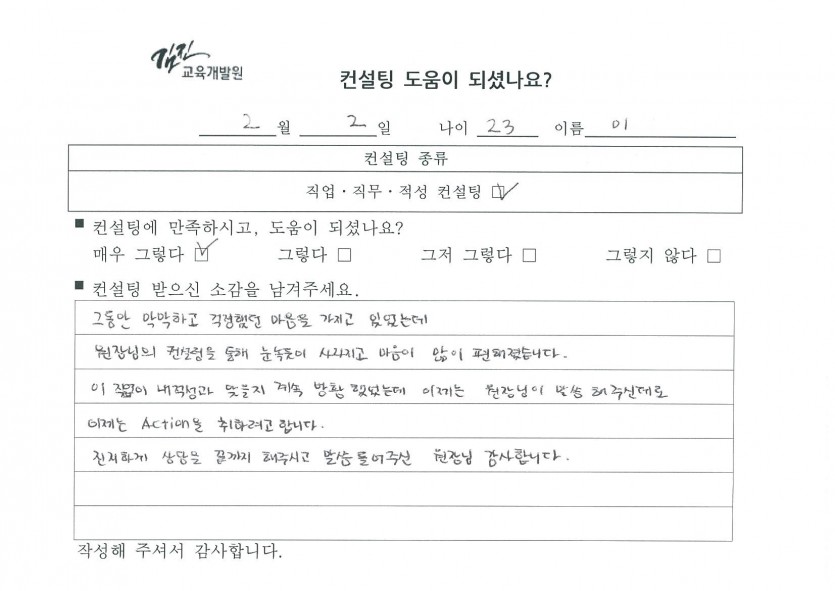 김진
교육개발원
컨설팅 도움이 되셨나요?
2 월 2 일 나이 23 이름 이
컨설팅 종류
직업·직무·적성 컨설팅 ☑
■ 컨설팅에 만족하시고, 도움이 되셨나요?
매우 그렇다 ☑ 그렇다 □ 그저 그렇다 □ 그렇지 않다 □
■ 컨설팅 받으신 소감을 남겨주세요.
그동안 막막하고 걱정했던 마음을 가지고 있었는데
원장님의 컨설팅을 통해 눈녹듯이 사라지고 마음이 많이 편해졌습니다.
이 직업이 내적성과 맞을지 계속 방황 했었는데 이제는 원장님이 말씀 해주신데로
이제는 Action을 취하려고 합니다.
진지하게 상담을 끝까지 해주시고 말씀 들어주신 원장님 감사합니다.
작성해 주셔서 감사합니다.